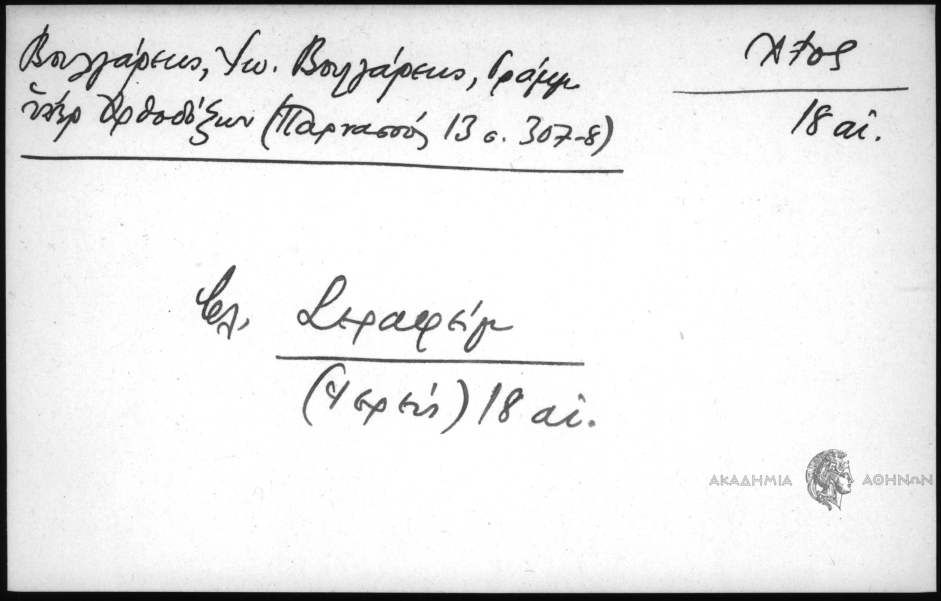 Βουλγάρεως, Ἰω. Βουλγάρεως, Γράμμ
ὑπέρ Ὀρθοδόξων (Παρνασσός 13 σ. 307-8)
18 αἰ.
βλ. Σεραφείμ
(Ἱερεύς) 18 αἰ.
ΑΚΑΔΗΜΙΑ ΑΘΗΝΩΝ